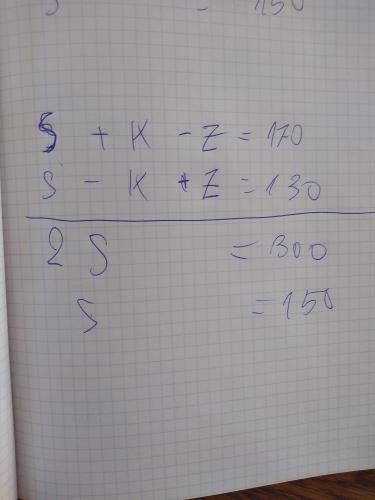 S = 150
S + K - Z = 170
S - K + Z = 130
2 S = 300
S = 150